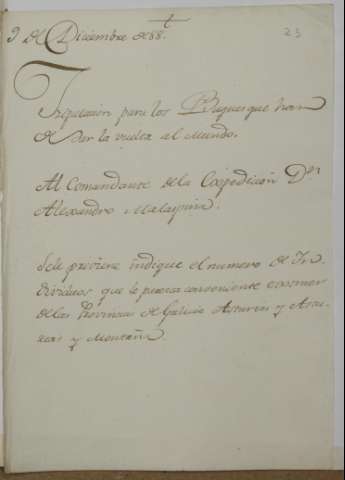 9 de Diciembre de 88.
25
Tripulacion para los Buques que han
de dar la vuelta al Mundo.
Al Comandante de la Expedición Dn
Alexandro Malaspina.
Sele previene indique el numero de In
dividuos que le parezca conveniente
de las Provincias de Galicia Asturias y
y Montaña.